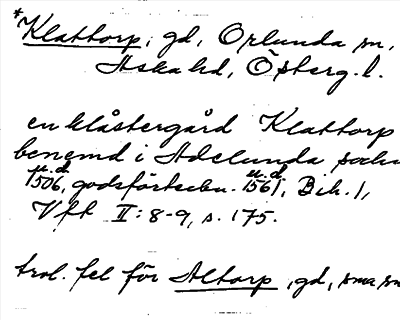 *Klattorp, gd, Orlunda sn,
Aska hd, Österg. l.
en klåstergård Klattorp
benemd i Adelunda sochn
u.d. u.d.
1506, godsförteckn. 1561, Bih. 1,
Vfk II: 8-9, s. 175.
trol. fel för Altorp, gd, sma sn